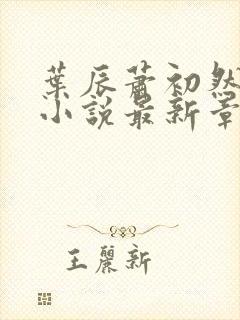 葉辰蕭初然
小說最新章
王麗新